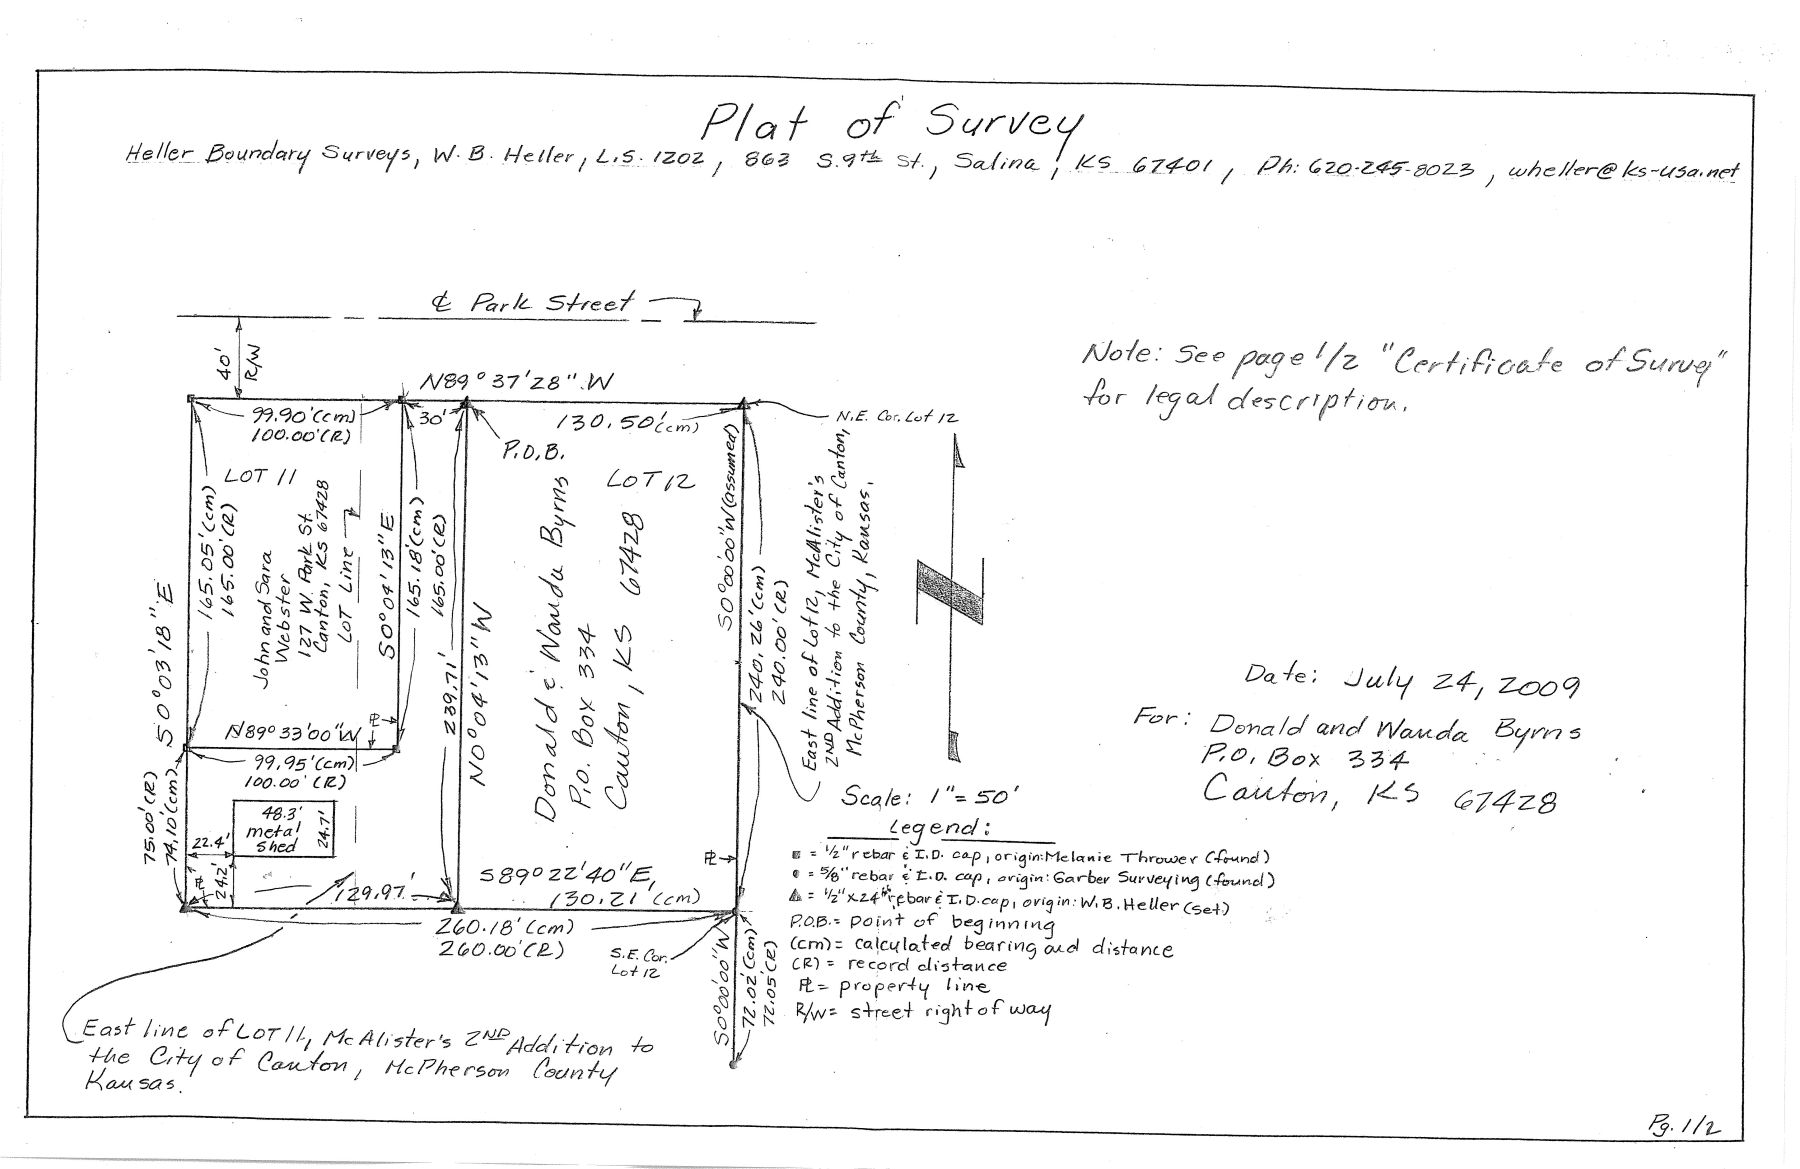 Plat of Survey
Heller Boundary Surveys, W. B. Heller, L.S. 1202, 863 S. 9th St., Salina, KS 67401, Ph: 620-245-8023, wheller@ks-usa.net
℄ Park Street
40'
R/W
N89°37'28".W
99.90'(cm)
100.00'(R)
30'
130.50'(cm)
N.E. Cor. Lot 12
P.O.B.
LOT 11
LOT 12
165.05'(cm)
165.00'(R)
S0°03'18"E
John and Sara
Webster
127 W. Park St.
Canton, KS 67428
LOT Line
S0°04'13"E
165.18'(cm)
165.00'(R)
239.71'
N0°04'13"W
Donald & Wanda Byrns
P.O. Box 334
Canton, KS 67428
S0°00'00"W (assumed)
240.26'(cm)
240.00'(R)
East line of Lot 12, McAlister's
2ND Addition to the City of Canton,
McPherson County, Kansas.
N
Note: See page 1/2 "Certificate of Survey"
for legal description.
Date: July 24, 2009
For: Donald and Wanda Byrns
P.O. Box 334
Canton, KS 67428
N89°33'00"W
PL
99.95'(cm)
100.00'(R)
75.00'(R)
74.10'(cm)
48.3'
metal
shed
24.7'
22.4'
24.2'
PL
129.97'
S89°22'40"E,
130.21'(cm)
PL
260.18'(cm)
260.00'(R)
S.E. Cor.
Lot 12
S0°00'00"W
72.02'(cm)
72.05'(R)
Scale: 1"=50'
Legend:
= 1/2" rebar & I.D. cap, origin: Melanie Thrower (found)
= 5/8" rebar & I.D. cap, origin: Garber Surveying (found)
= 1/2"x24" rebar & I.D. cap, origin: W.B. Heller (set)
P.O.B.= point of beginning
(cm)= calculated bearing and distance
(R)= record distance
PL= property line
R/W= street right of way
East line of LOT 11, McAlister's 2ND Addition to
the City of Canton, McPherson County
Kansas.
Pg. 1/2